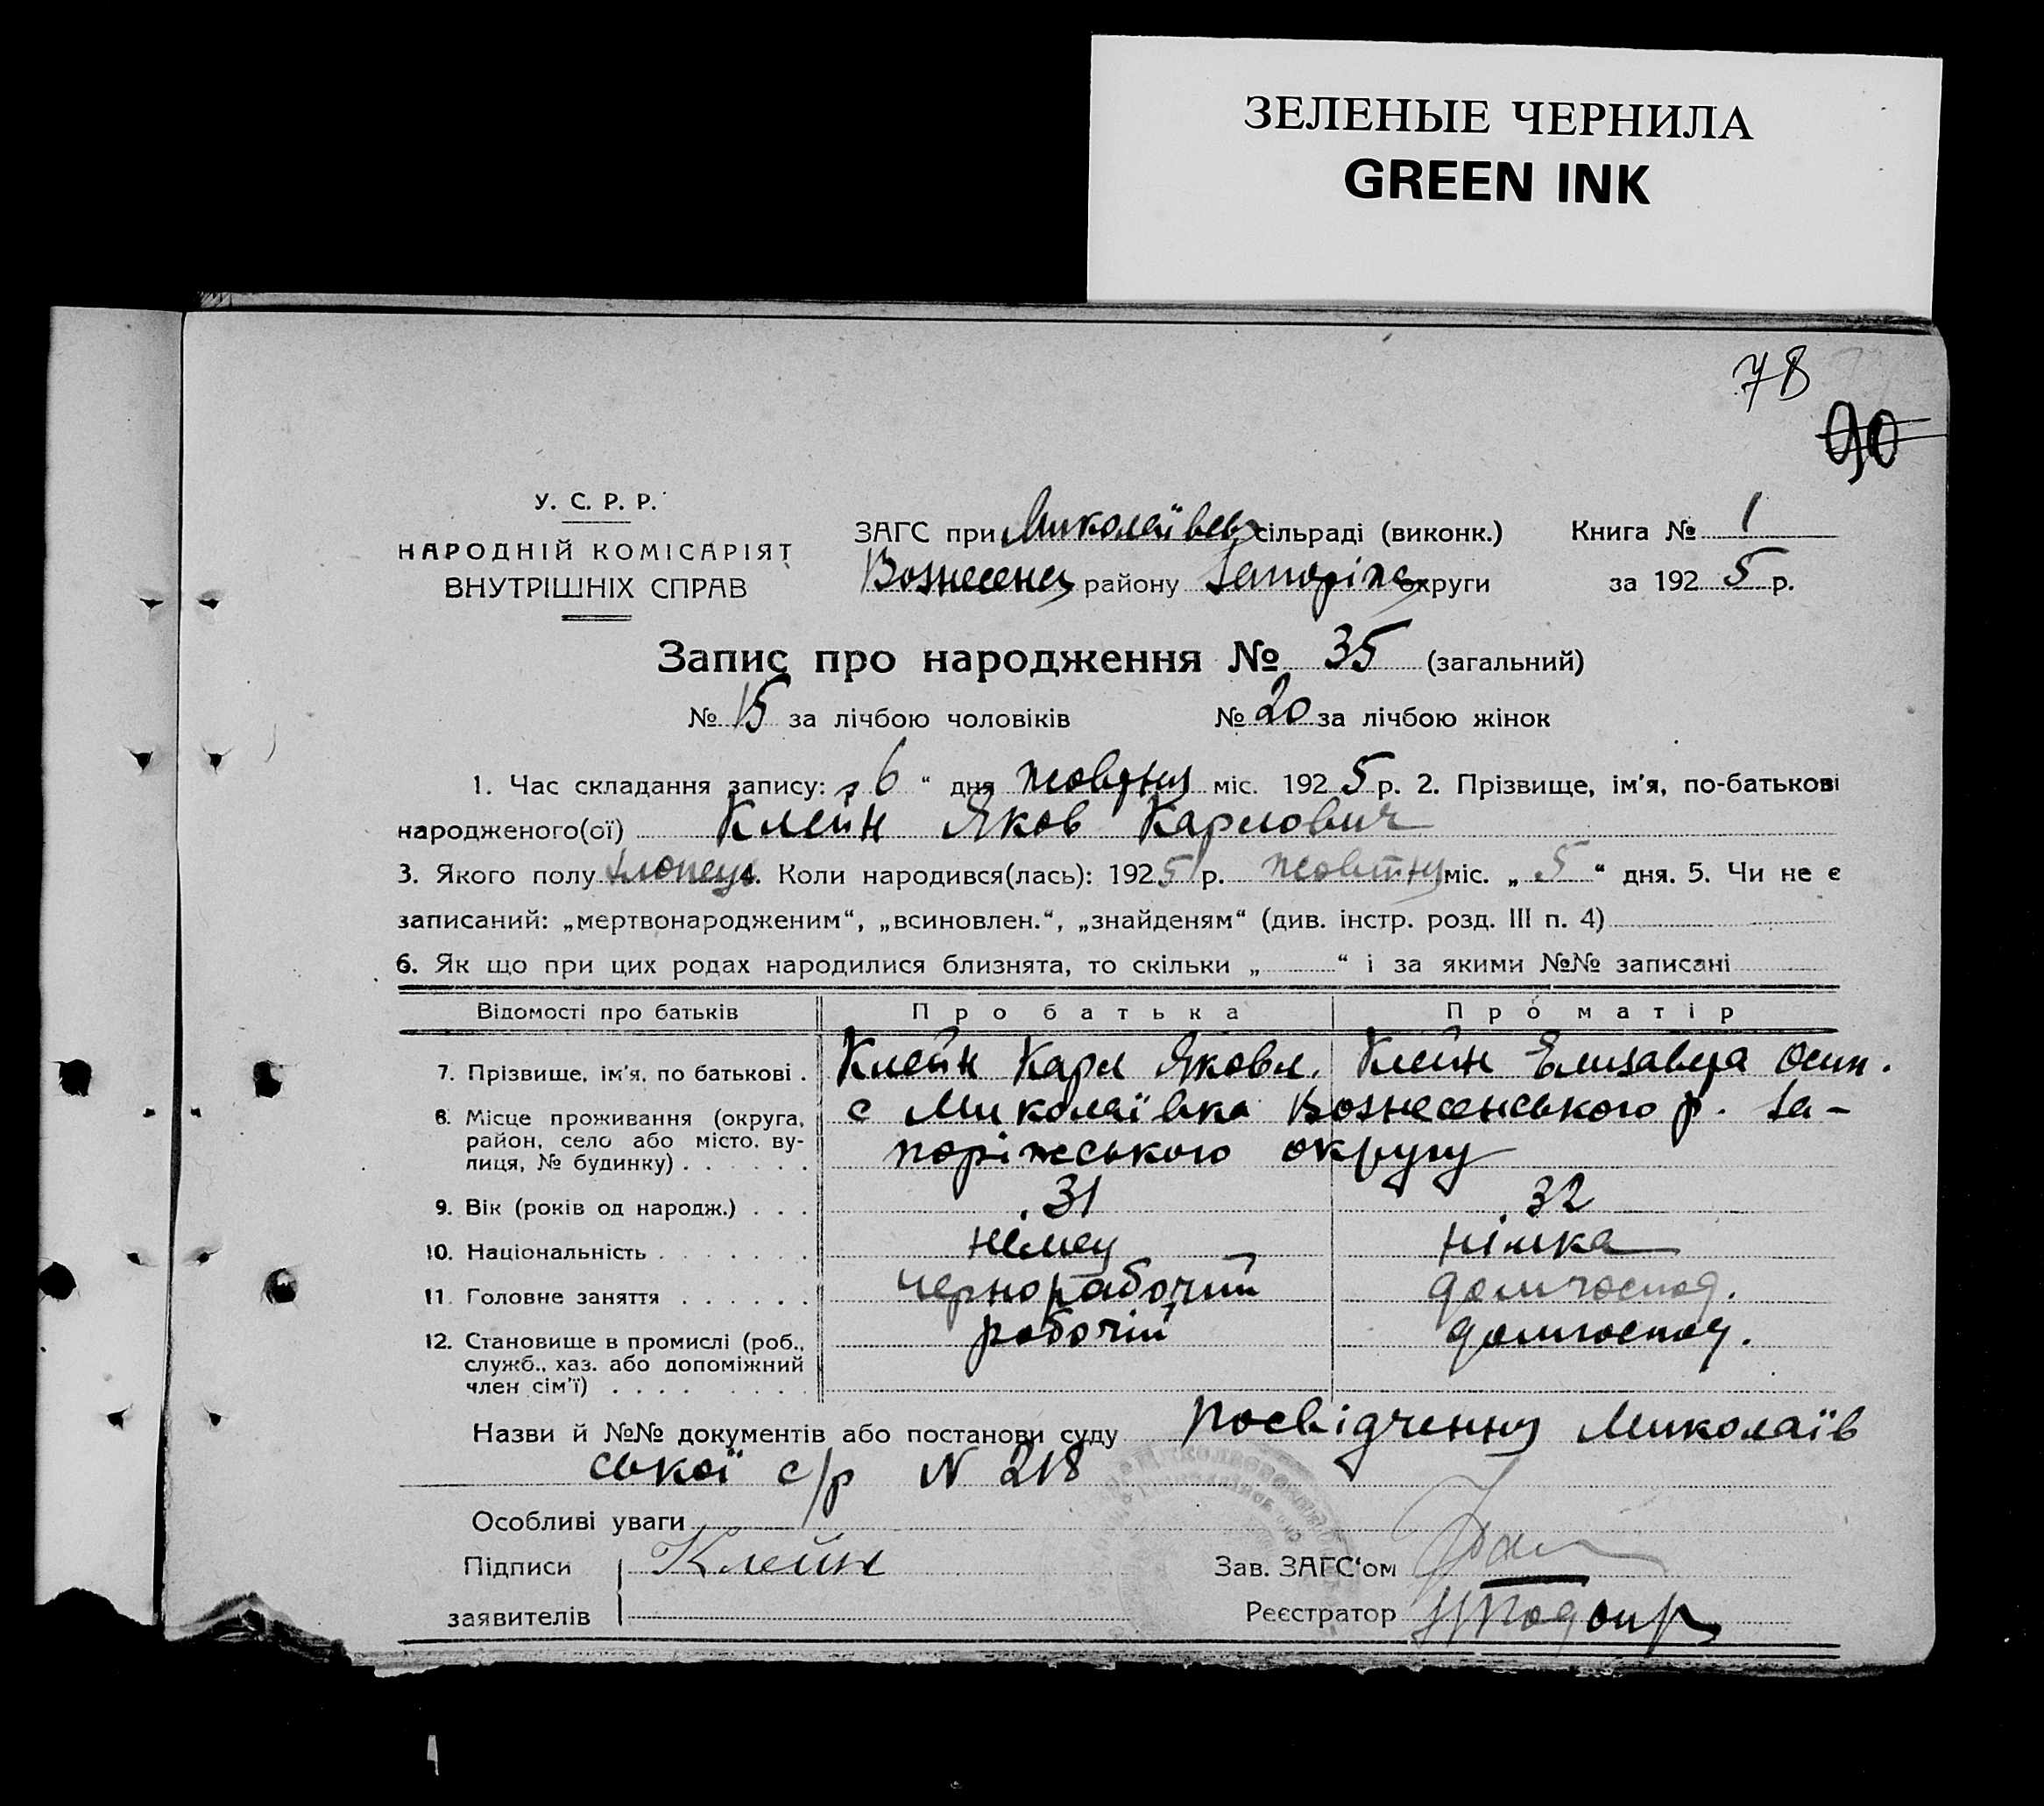 ЗЕЛЕНЫЕ ЧЕРНИЛА
GREEN INK
78
90
У. С. Р. Р.
НАРОДНІЙ КОМІСАРІЯТ
ВНУТРІШНІХ СПРАВ
ЗАГС при Миколаївськ сільраді (виконк.) Книга № 1
Вознесенськ району Запоріж округи за 1925 р.
Запис про народження № 35 (загальний)
№ 15 за лічбою чоловіків № 20 за лічбою жінок
1. Час складання запису: „ 6 “ дня жовтня міс. 1925 р. 2. Прізвище, ім'я, по-батькові
народженого(ої) Клейн Яков Карлович
3. Якого полу хлопець 4. Коли народився(лась): 1925 р. жовтня міс. „ 5 “ дня. 5. Чи не є
записаний: „мертвонародженим“, „всиновлен.“, „знайденям“ (див. інстр. розд. III п. 4)
6. Як що при цих родах народилися близнята, то скільки „ “ і за якими №№ записані
Відомості про батьків Про батька Про матір
7. Прізвище, ім'я, по батькові . Клейн Карл Яковл. Клейн Елизавета Осип.
8. Місце проживання (округа, район, село або місто, вулиця, № будинку) . . . . . . с Миколаївка Вознесенського р. За-
поріжського округу
9. Вік (років од народж.) . . . 31 32
10. Національність . . . . . . . німец німка
11. Головне заняття . . . . . . чернорабочий домгоспод.
12. Становище в промислі (роб., служб., хаз. або допоміжний член сім'ї) . . . . . . . . робочій домгоспод.
Назви й №№ документів або постанови суду посвідчення Миколаїв
ської с/р N 218
Особливі уваги
Підписи Клейн Зав. ЗАГС'ом
заявителів Реєстратор